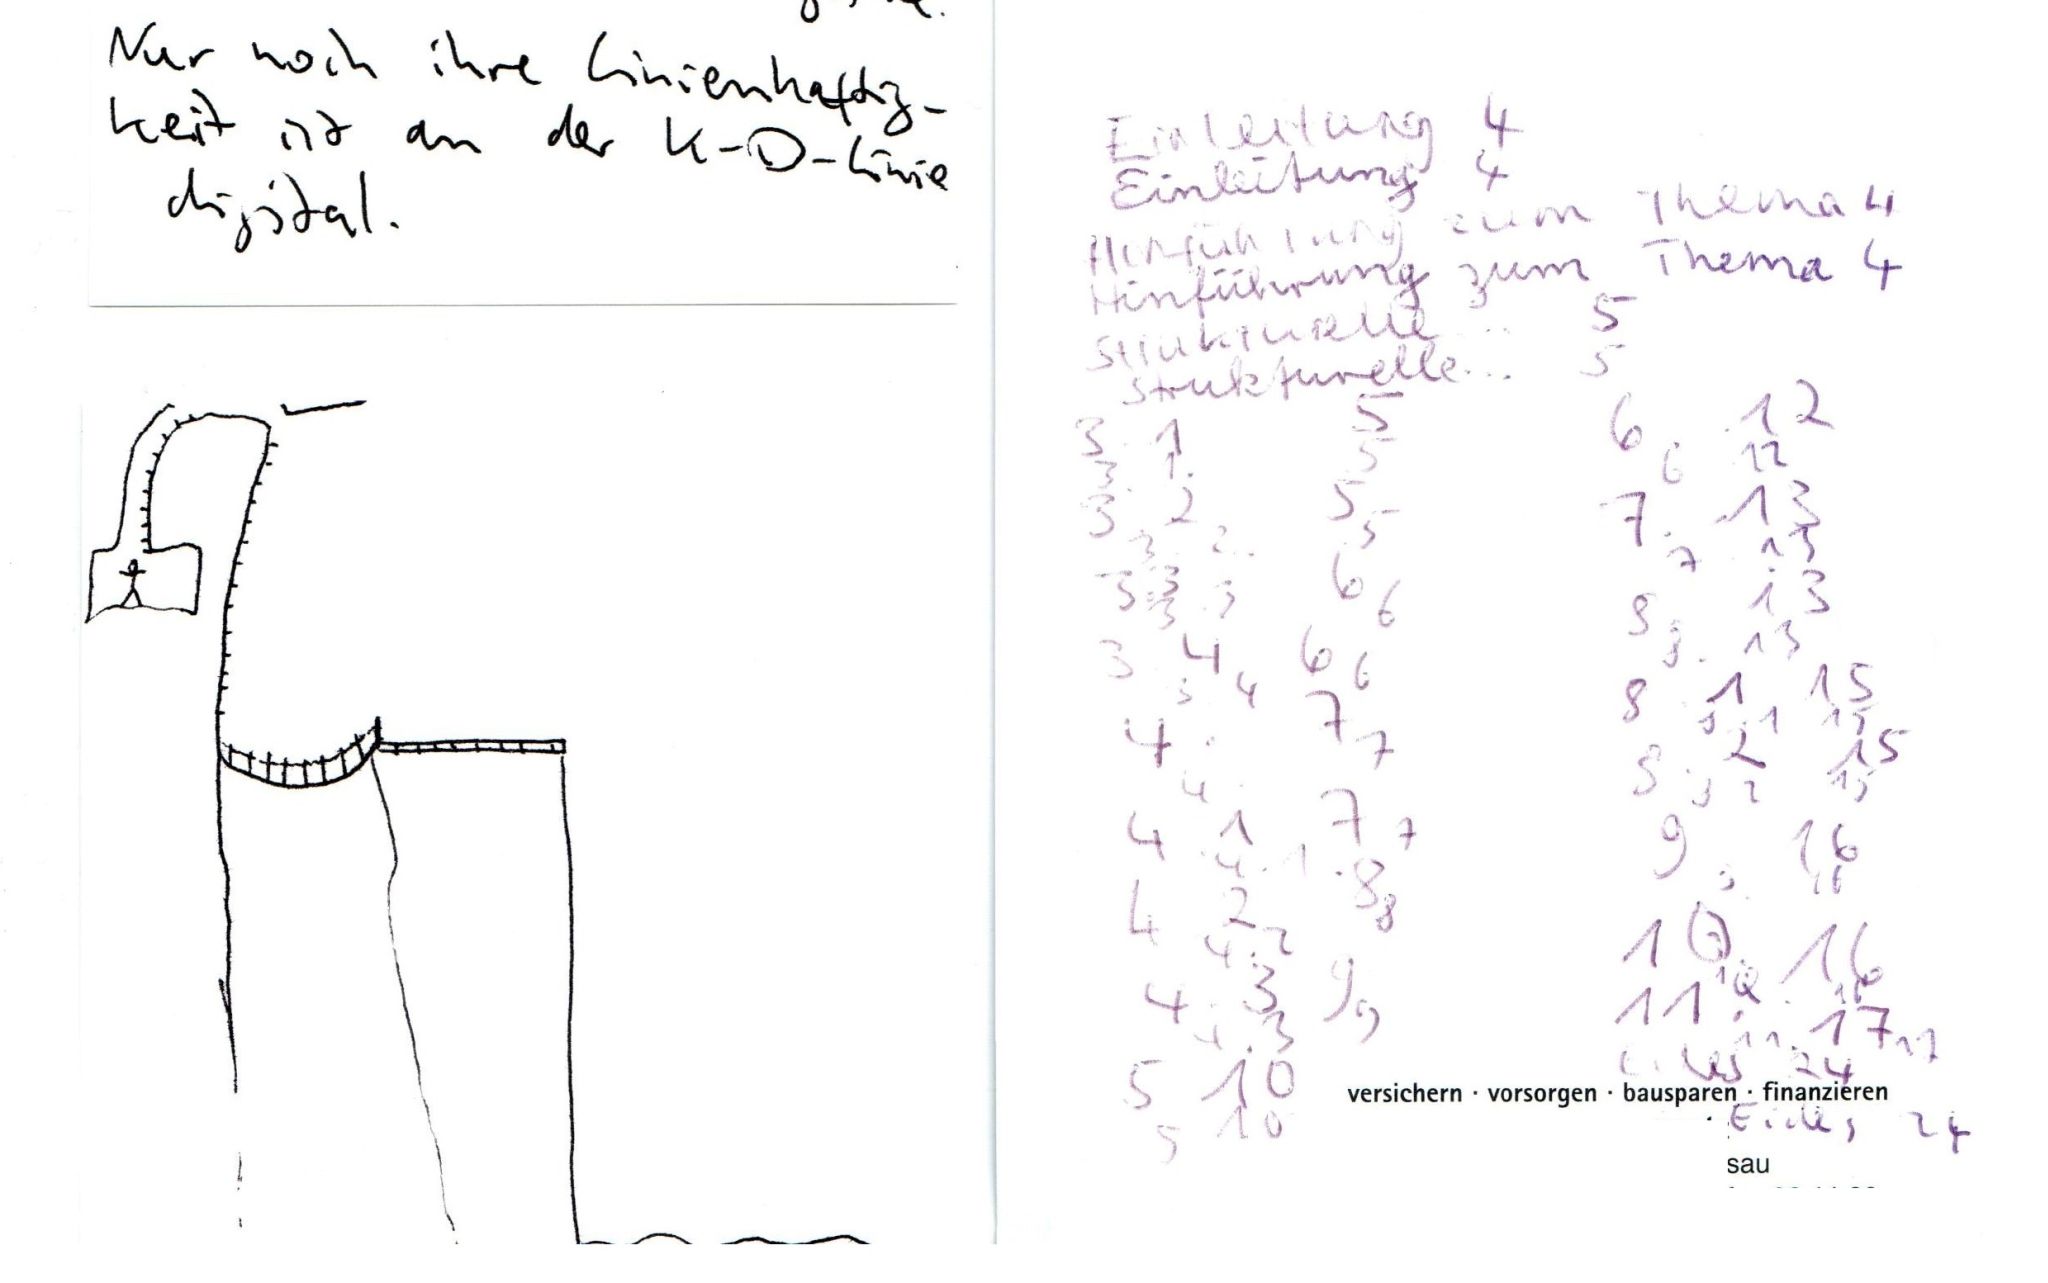 Nur noch ihre Linienhaftig-
keit ist an der K-D-Linie
digital.
Einleitung 4
Einleitung 4
Hinführung zum Thema 4
Hinführung zum Thema 4
Strukturelle... 5
Strukturelle... 5
3. 1 5
3. 1. 5
3. 2 5
3. 2. 5
3. 3 6
3. 3 6
3. 4 6
3 4 6
4. 7
4. 7
4 1 7
4. 1. 7
4 2 8
4.2 8
4. 3 9
4. 3 9
5 10
5 10
6. 12
6 12
7. 13
7 13
8. 13
8. 13
8 1 15
8. 1 15
8. 2 15
8 2 15
9. 16
9 16
10. 16
10. 16
11. 17
11. 17
24
24
versichern · vorsorgen · bausparen · finanzieren
sau